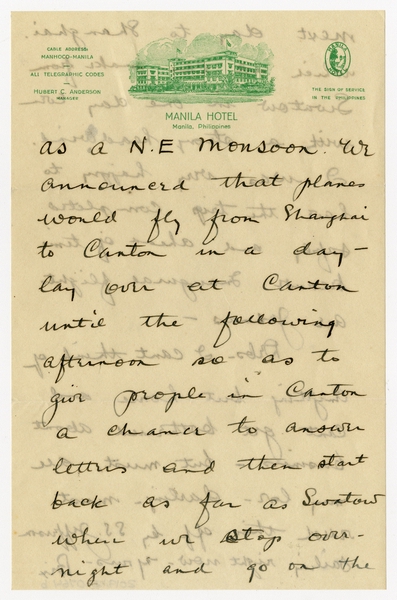 CABLE ADDRESS:
MANHOCO-MANILA
ALL TELEGRAPHIC CODES
HUBERT C. ANDERSON
MANAGER
MANILA HOTEL
Manila, Philippines
MANILA HOTEL
THE SIGN OF SERVICE
IN THE PHILIPPINES
as a N.E Monsoon. We
announced that planes
would fly from Shanghai
to Canton in a day –
lay over at Canton
until the following
afternoon so as to
give people in Canton
a chance to answer
letters and then start
back as far as Swatow
when we stop over-
night and go on the